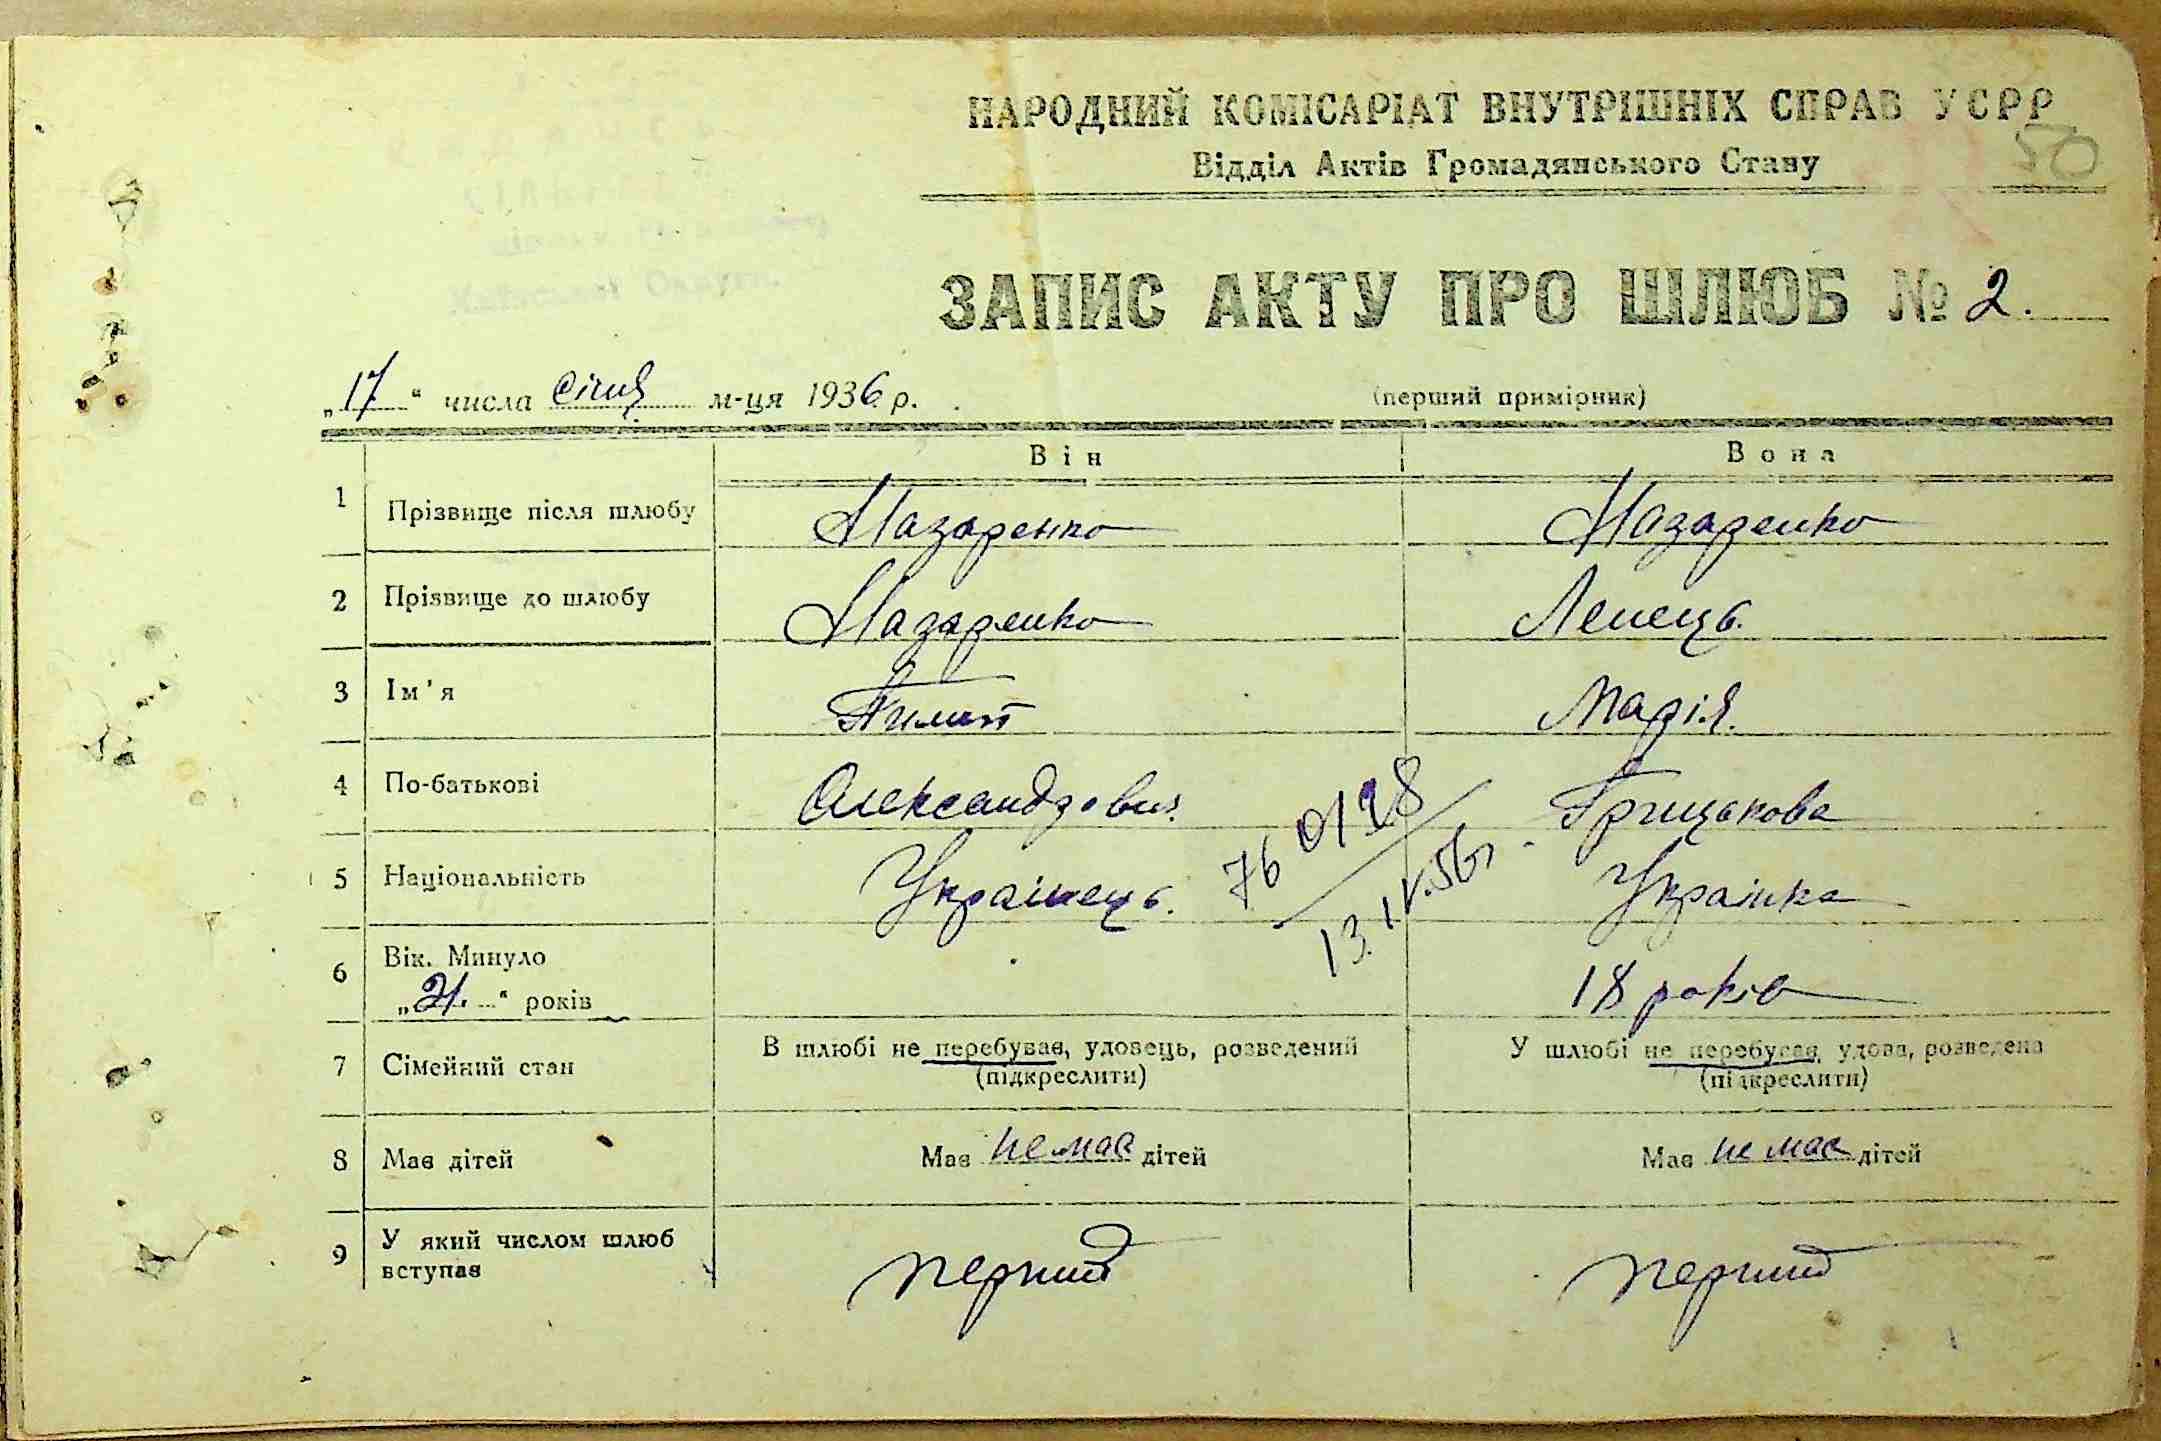 НАРОДНИЙ КОМІСАРІАТ ВНУТРІШНІХ СПРАВ УСРР
50
Відділ Актів Громадянського Стану
ЗАПИС АКТУ ПРО ШЛЮБ № 2.
„17“ числа січня м-ця 1936 р.
(перший примірник)
Він Вона
1 Прізвище після шлюбу Назаренко Назаренко
2 Прізвище до шлюбу Назаренко Лепець.
3 Ім'я Пилип Марія.
4 По-батькові Олександрович. Грицькова
5 Національність Українець. Українка
76 0128
13.IV.56г.
6 Вік. Минуло
„21.“ років 18 років
7 Сімейний стан В шлюбі не перебував, удовець, розведений У шлюбі не перебувал, удова, розведена
(підкреслити) (підкреслити)
8 Має дітей Має не має дітей Має не має дітей
9 У який числом шлюб
вступає перший перший